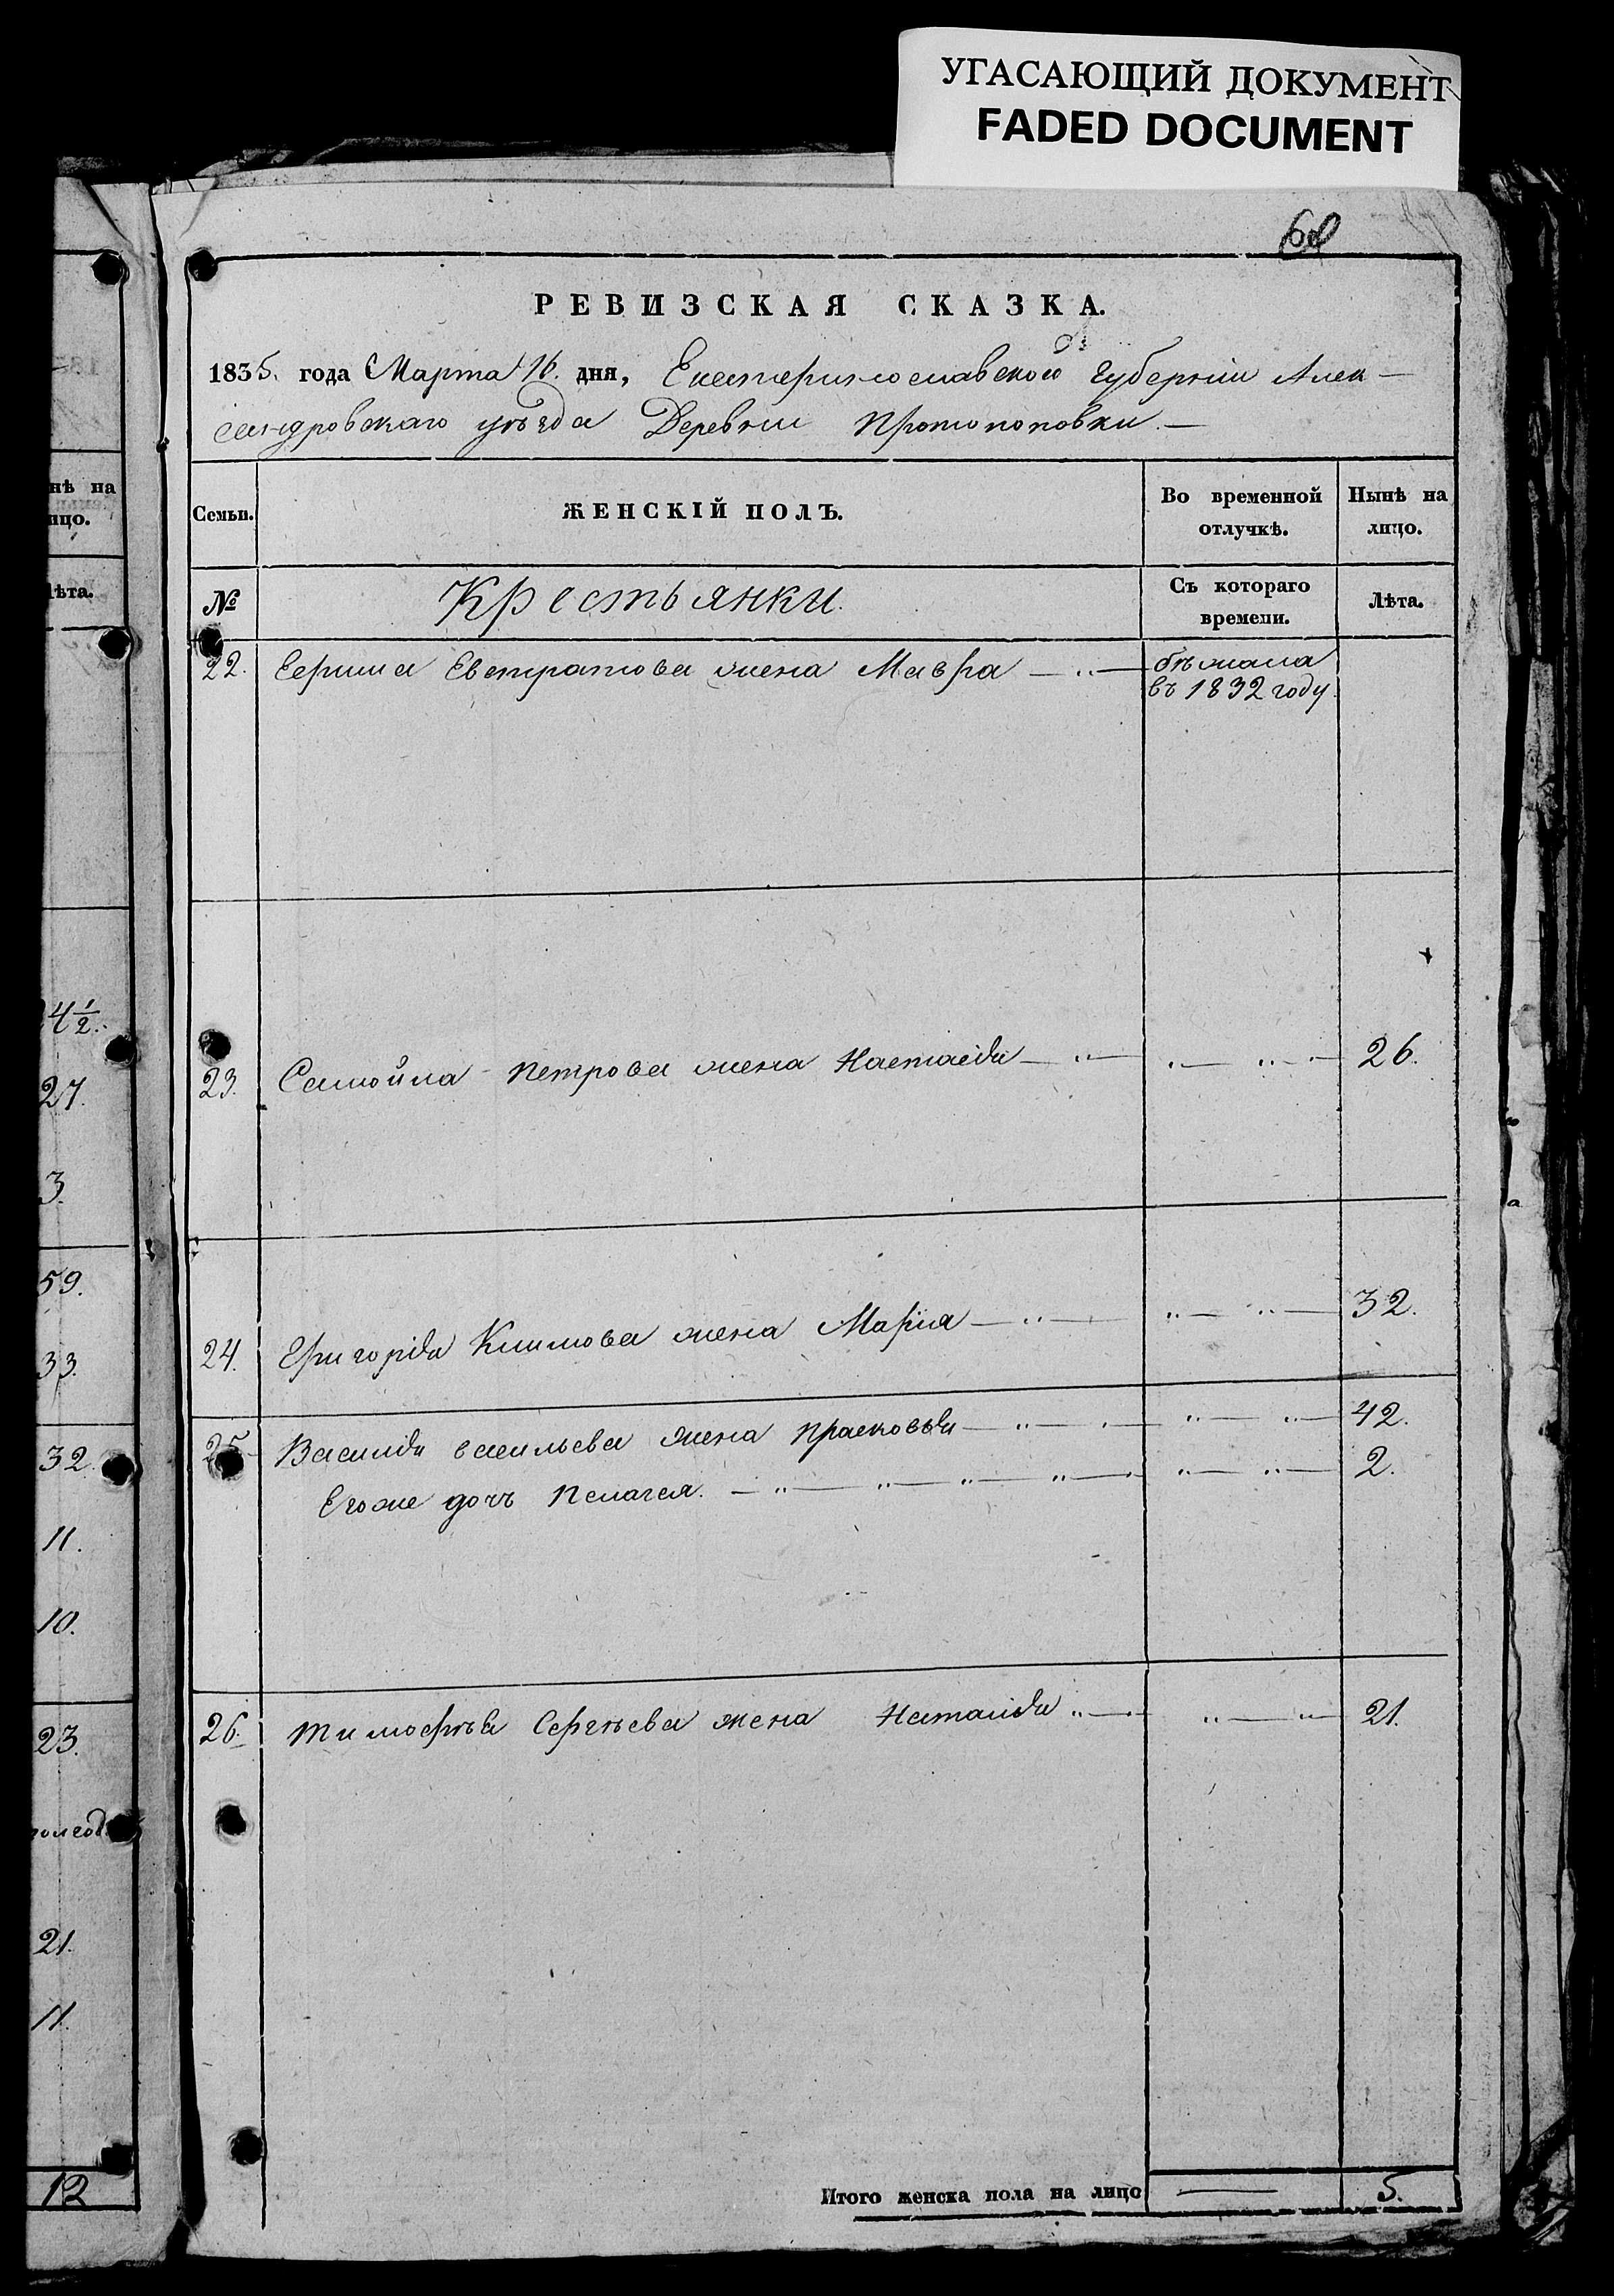 УГАСАЮЩИЙ ДОКУМЕНТ
FADED DOCUMENT
РЕВИЗСКАЯ СКАЗКА.
1835. года Марта 16. дня, Екатеринославской Губерніи Алек-
сандровскаго уѣзда Деревни Протопоповки.
Семьи.
ЖЕНСКІЙ ПОЛЪ.
Во временной
отлучкѣ.
Нынѣ на
лицо.
№
Крестьянки.
Съ котораго
времени.
Лѣта.
22. Евстратова жена Мавра бѣжала
въ 1832 году.
23. Самойла Петрова жена Настасія 26.
24. Григорія Климова жена Марія 32.
25 Василія васильева жена Прасковья 42.
Егоже дочь Пелагея. 2.
26. Тимофѣя Сергѣева жена Наталія 21.
Итого женска пола на лицо — 5.
нѣ на
ицо.
лѣта.
4½.
27.
3.
59.
33.
32.
11.
10.
23.
21.
11.
12